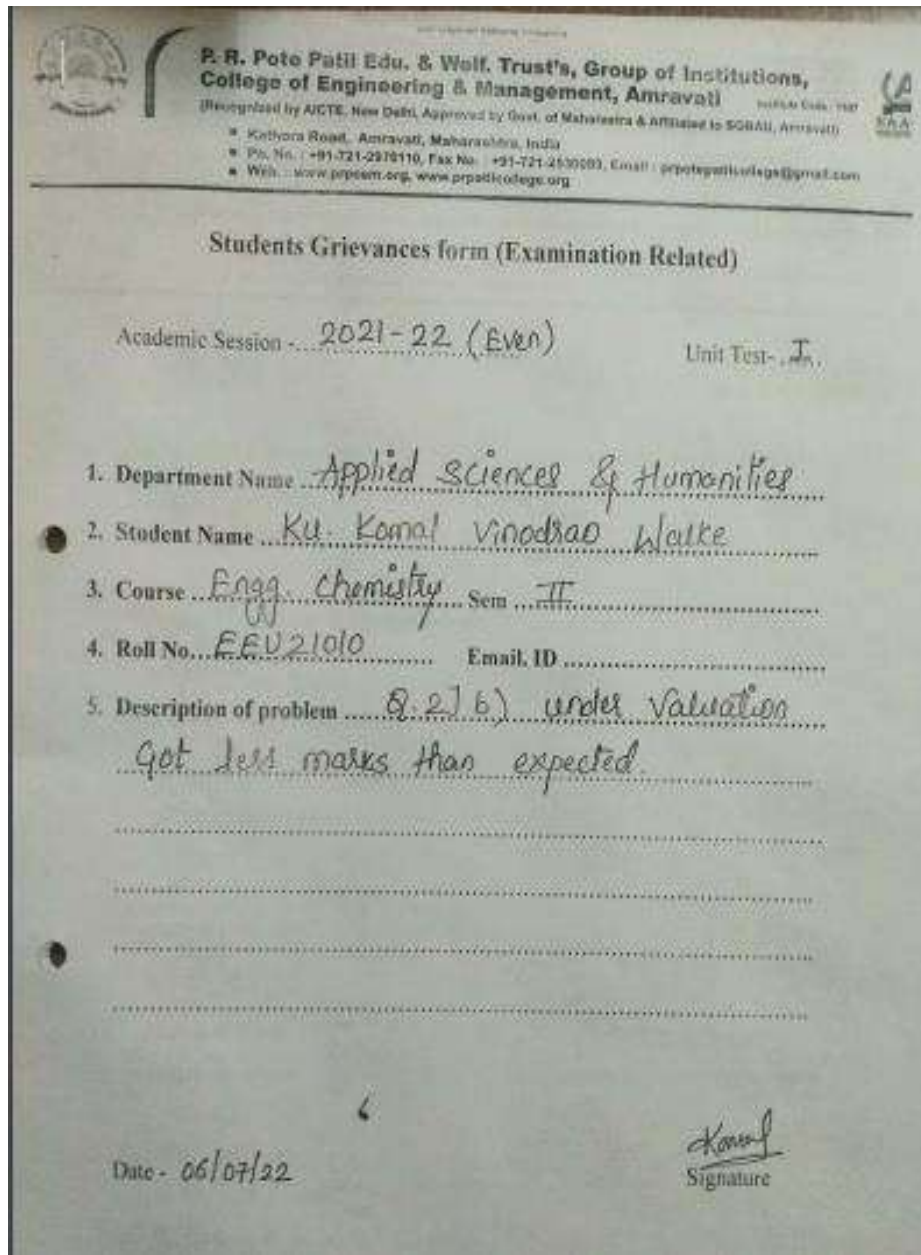 P. R. Pote Patil Edu. & Welf. Trust's, Group of Institutions,
College of Engineering & Management, Amravati
(Recognized by AICTE, New Delhi, Approved by Govt. of Maharashtra & Affiliated to SGBAU, Amravati)
Kathora Road, Amravati, Maharashtra, India
Ph. No. : +91-721-2970110, Fax No. : +91-721-2530093, Email : prpotepatilcollege@gmail.com
Web. : www.prpcem.org, www.prpatilcollege.org
Students Grievances form (Examination Related)
Academic Session - 2021-22 (Even)
Unit Test- I
1. Department Name Applied Sciences & Humanities
2. Student Name Ku. Komal Vinodrao Walke
3. Course Engg. Chemistry Sem II
4. Roll No. EEU21010 Email. ID
5. Description of problem Q.2] b) under Valuation
Got less marks than expected.
Date - 06/07/22
Komal
Signature